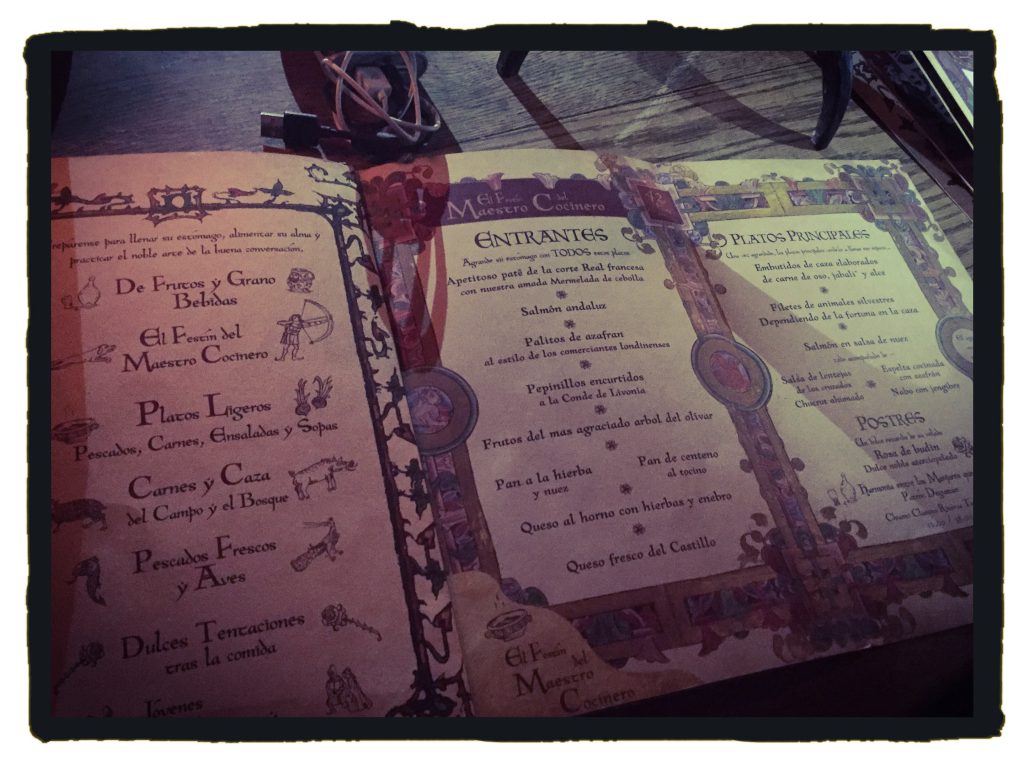 prepárense para llenar su estómago, alimentar su alma y
practicar el noble arte de la buena conversación.
De Frutos y Grano
Bebidas
El Festín del
Maestro Cocinero
Platos Ligeros
Pescados, Carnes, Ensaladas y Sopas
Carnes y Caza
del Campo y el Bosque
Pescados Frescos
y Aves
Dulces Tentaciones
tras la comida
Jóvenes
El Festín del
Maestro Cocinero
12
ENTRANTES
Agrande su estomago con TODOS estos platos
Apetitoso paté de la corte Real francesa
con nuestra amada Mermelada de cebolla
Salmón andaluz
Palitos de azafran
al estilo de los comerciantes londinenses
Pepinillos encurtidos
a la Conde de Livonia
Frutos del mas agraciado arbol del olivar
Pan a la hierba
y nuez
Pan de centeno
al tocino
Queso al horno con hierbas y enebro
Queso fresco del Castillo
El Festín del
Maestro
Cocinero
PLATOS PRINCIPALES
Embutidos de caza elaborados
de carne de oso, jabalí y alce
Filetes de animales silvestres
Dependiendo de la fortuna en la caza
Salmón en salsa de nuez
Salsa de lentejas
de los cruzados
Chucrut ahumado
Espelta cocinada
con azafrán
Nabo con jengibre
POSTRES
Rosa de budin
Dulce noble aterciopelado